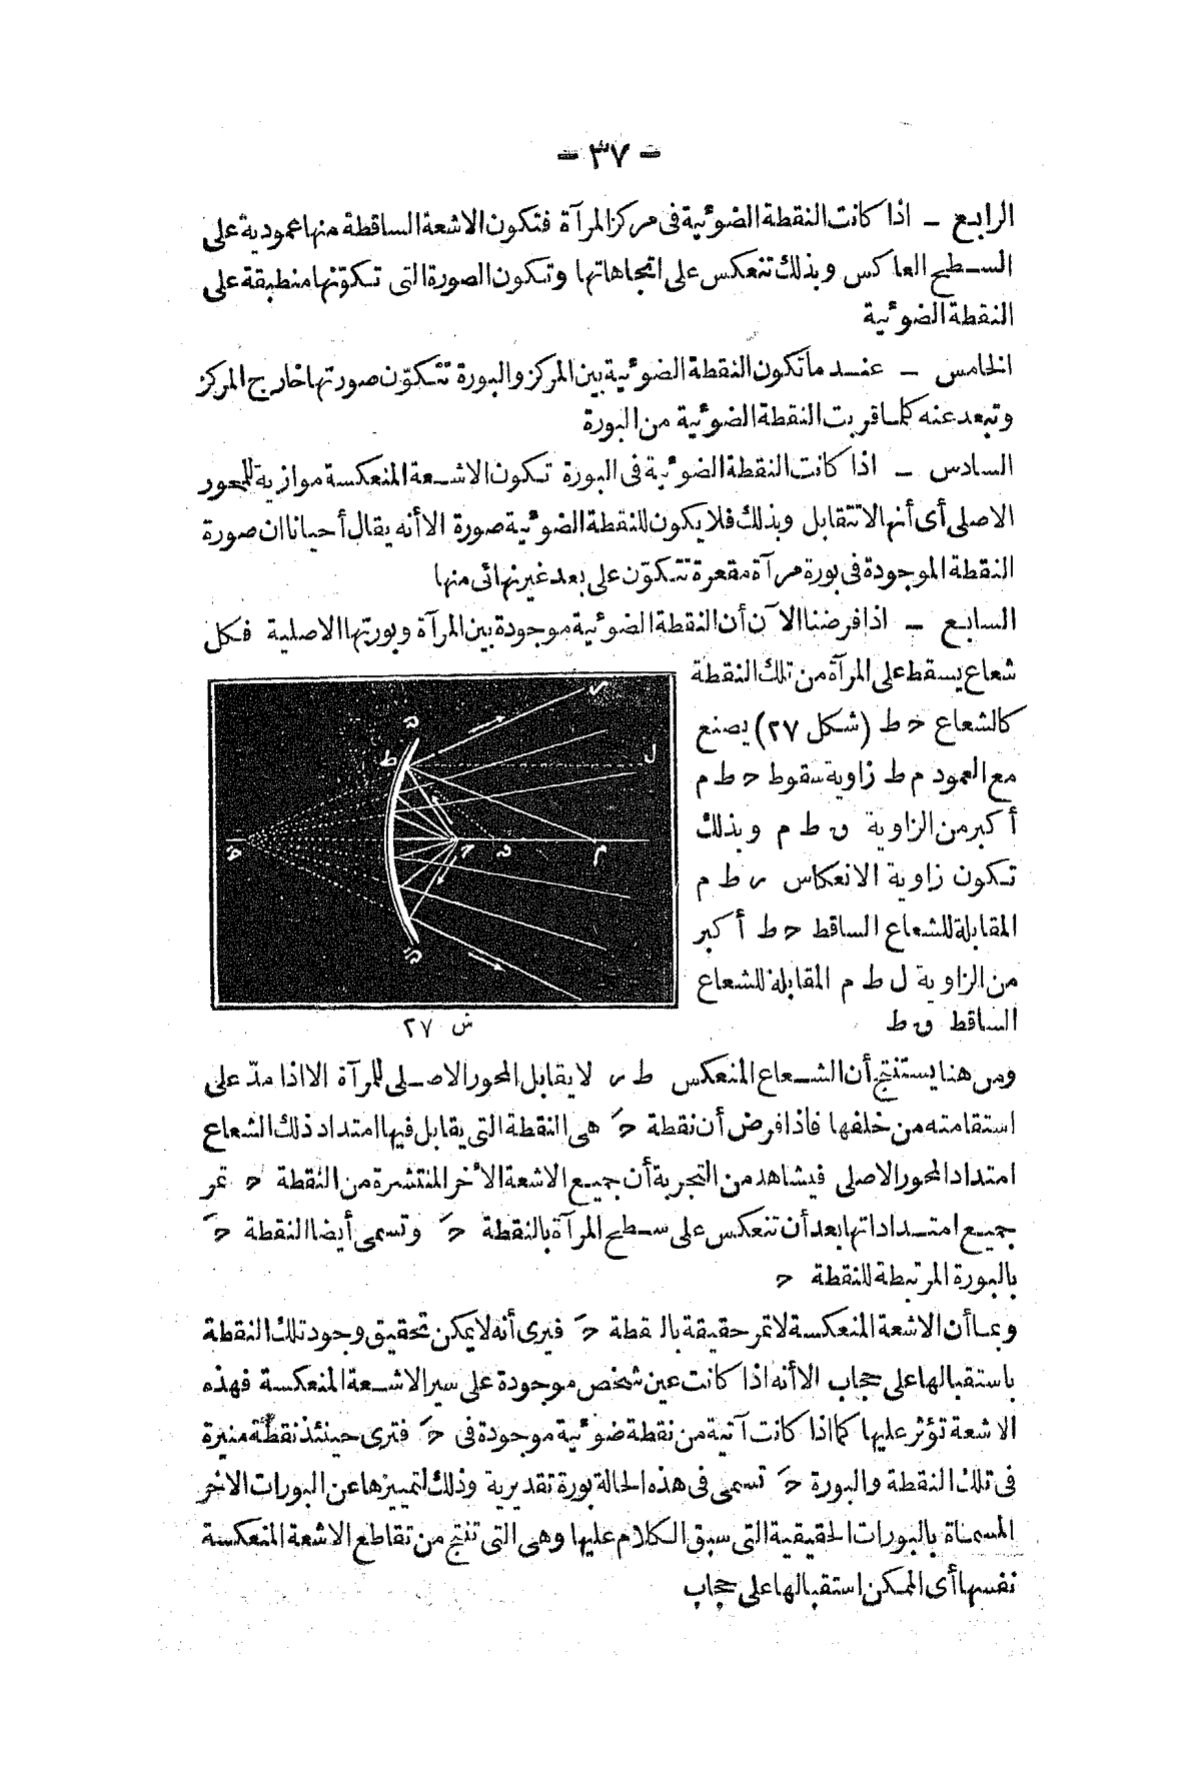 - ٣٧ -
الرابع - اذا كانت النقطة الضوئية فى مركز المرآة فتكون الاشعة الساقطة منها عمودية على
السطح العاكس وبذلك تنعكس على اتجاهاتها وتكون الصورة التى تكوّنها منطبقة على
النقطة الضوئية
الخامس - عند ما تكون النقطة الضوئية بين المركز والبورة تتكوّن صورتها خارج المركز
وتبعد عنه كلما قربت النقطة الضوئية من البورة
السادس - اذا كانت النقطة الضوئية فى البورة تكون الاشعة المنعكسة موازية للمحور
الاصلى أى أنها لا تتقابل وبذلك فلا يكون للنقطة الضوئية صورة الا أنه يقال أحيانا ان صورة
النقطة الموجودة فى بورة مرآة مقعرة تتكوّن على بعد غير نهائى منها
السابع - اذا فرضنا الآن أن النقطة الضوئية موجودة بين المرآة وبورتها الاصلية فكل
شعاع يسقط على المرآة من تلك النقطة
كالشعاع ح ط (شكل ٢٧) يصنع
مع العمود م ط زاوية سقوط ح ط م
أكبر من الزاوية ق ط م وبذلك
تكون زاوية الانعكاس ر ط م
المقابلة للشعاع الساقط ح ط أكبر
من الزاوية ل ط م المقابلة للشعاع
الساقط ق ط
ر
ط
ل
م
ش ٢٧
ومن هنا يستنتج أن الشعاع المنعكس ط ر لا يقابل المحور الاصلى للمرآة الا اذا مدّ على
استقامته من خلفها فاذا فرض أن نقطة حَ هى النقطة التى يقابل فيها امتداد ذلك الشعاع
امتداد المحور الاصلى فيشاهد من التجربة أن جميع الاشعة الأخر المنتشرة من النقطة ح تمر
جميع امتداداتها بعد أن تنعكس على سطح المرآة بالنقطة حَ وتسمى أيضا النقطة حَ
بالبورة المرتبطة للنقطة ح
وبما أن الاشعة المنعكسة لا تمر حقيقة بالنقطة حَ فيرى أنه لا يمكن تحقيق وجود تلك النقطة
باستقبالها على حجاب الا أنه اذا كانت عين شخص موجودة على سير الاشعة المنعكسة فهذه
الاشعة تؤثر عليها كما اذا كانت آتية من نقطة ضوئية موجودة فى حَ فترى حينئذ نقطة منيرة
فى تلك النقطة والبورة حَ تسمى فى هذه الحالة بورة تقديرية وذلك لتمييزها عن البورات الاخر
المسماة بالبورات الحقيقية التى سبق الكلام عليها وهى التى تنتج من تقاطع الاشعة المنعكسة
نفسها أى الممكن استقبالها على حجاب